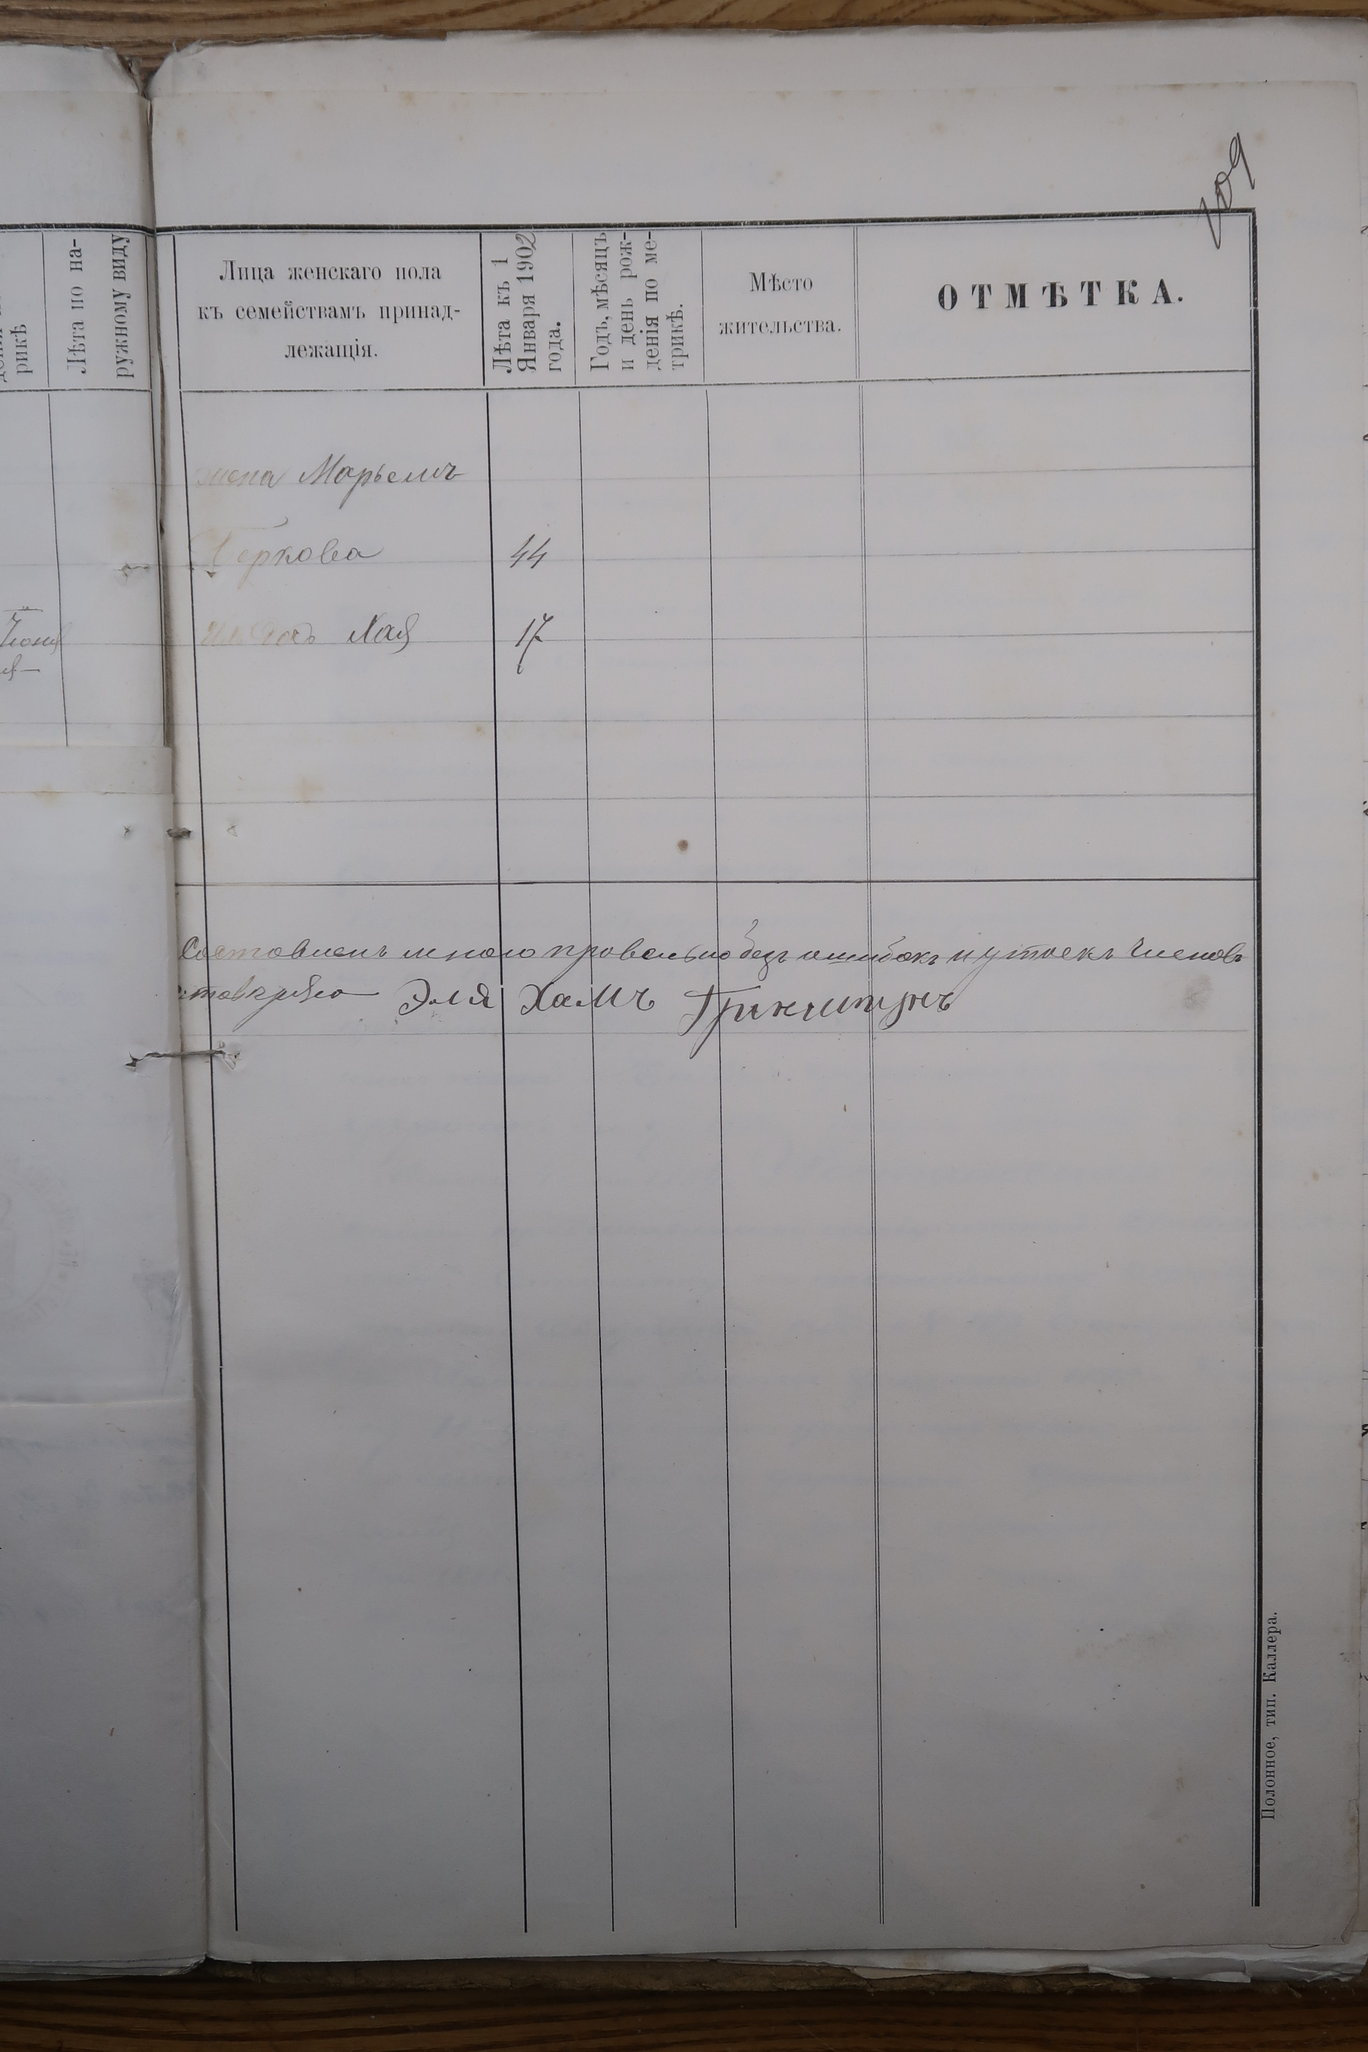 109
рикѣ
Лѣта по на-
ружному виду
Лица женскаго пола
къ семействамъ принад-
лежащія.
Лѣта къ 1
Января 1902
года.
Годъ, мѣсяцъ
и день рож-
денія по ме-
трикѣ.
Мѣсто
жительства.
ОТМѢТКА.
жена Марьемъ
Беркова 44
Хая 17
Составленъ мною правельно безъ ошибокъ и утоекъ членовъ
Эля Хаимъ Гринштэнъ
Полонное, тип. Каллера.